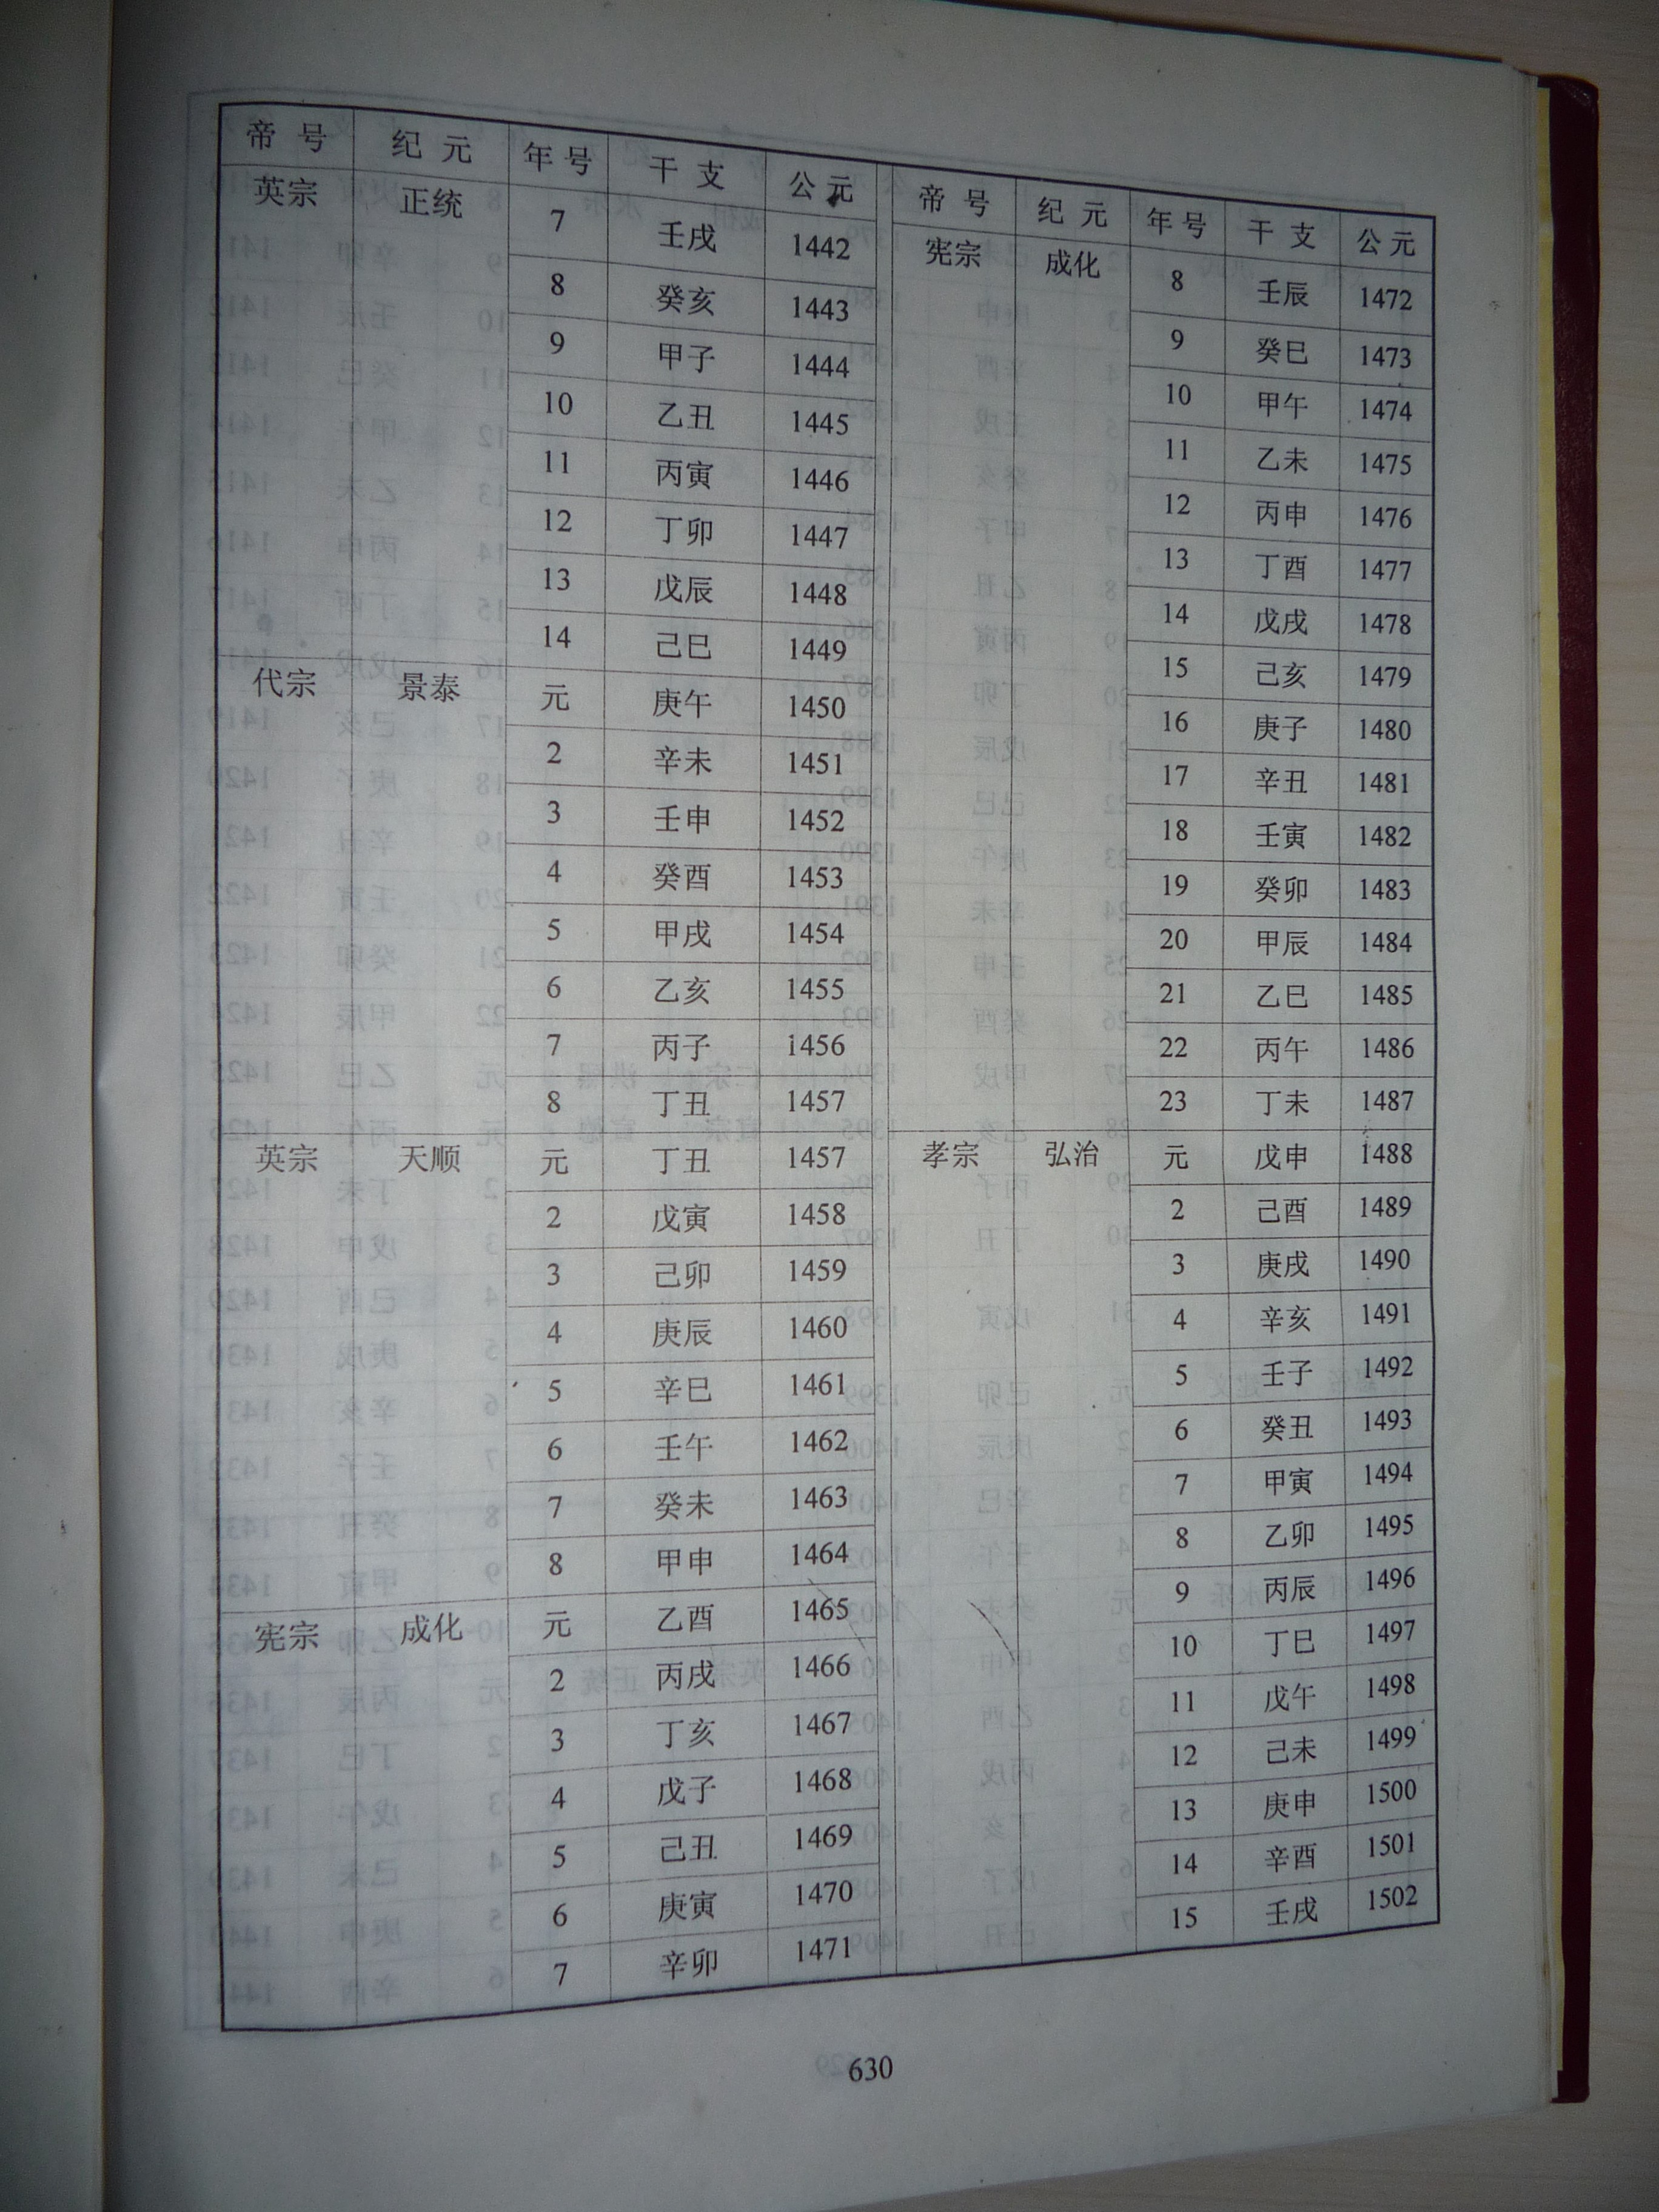 帝号 纪元 年号 干支 公元
英宗 正统 7 壬戌 1442
8 癸亥 1443
9 甲子 1444
10 乙丑 1445
11 丙寅 1446
12 丁卯 1447
13 戊辰 1448
14 己巳 1449
代宗 景泰 元 庚午 1450
2 辛未 1451
3 壬申 1452
4 癸酉 1453
5 甲戌 1454
6 乙亥 1455
7 丙子 1456
8 丁丑 1457
英宗 天顺 元 丁丑 1457
2 戊寅 1458
3 己卯 1459
4 庚辰 1460
5 辛巳 1461
6 壬午 1462
7 癸未 1463
8 甲申 1464
宪宗 成化 元 乙酉 1465
2 丙戌 1466
3 丁亥 1467
4 戊子 1468
5 己丑 1469
6 庚寅 1470
7 辛卯 1471
帝号 纪元 年号 干支 公元
宪宗 成化 8 壬辰 1472
9 癸巳 1473
10 甲午 1474
11 乙未 1475
12 丙申 1476
13 丁酉 1477
14 戊戌 1478
15 己亥 1479
16 庚子 1480
17 辛丑 1481
18 壬寅 1482
19 癸卯 1483
20 甲辰 1484
21 乙巳 1485
22 丙午 1486
23 丁未 1487
孝宗 弘治 元 戊申 1488
2 己酉 1489
3 庚戌 1490
4 辛亥 1491
5 壬子 1492
6 癸丑 1493
7 甲寅 1494
8 乙卯 1495
9 丙辰 1496
10 丁巳 1497
11 戊午 1498
12 己未 1499
13 庚申 1500
14 辛酉 1501
15 壬戌 1502
630